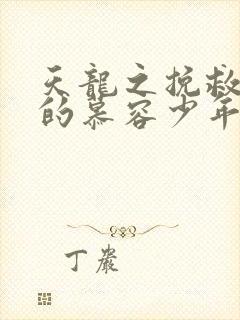 天龍之挽救
的慕容少年
丁巖